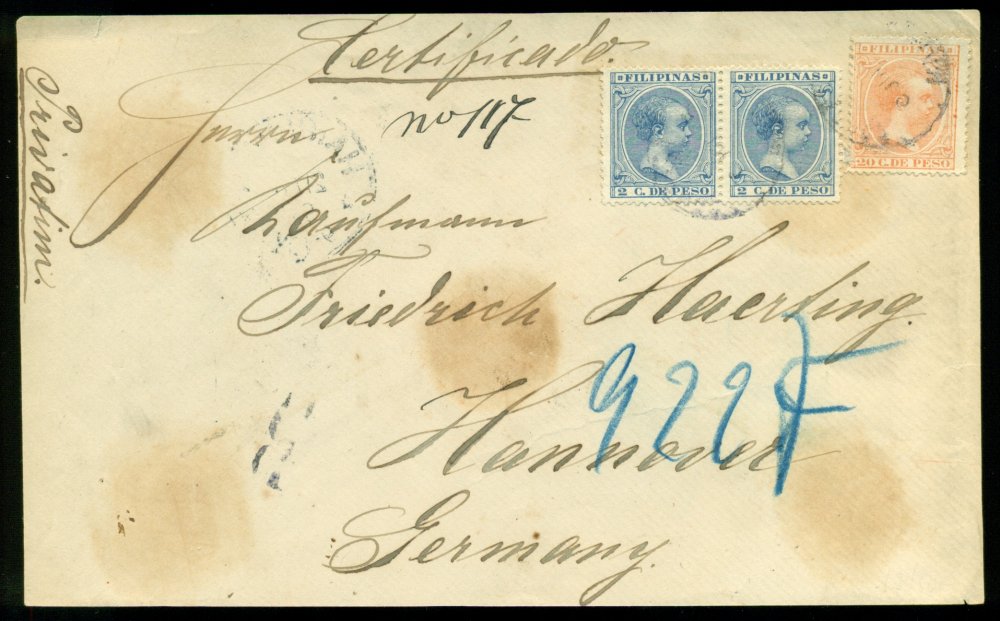 Certificado.
Privatim.
Herrn
no 117
FILIPINAS
2 C. DE PESO
FILIPINAS
2 C. DE PESO
FILIPINAS
20 C. DE PESO
Kaufmann
Friedrich Haerting.
Hannover
Germany.